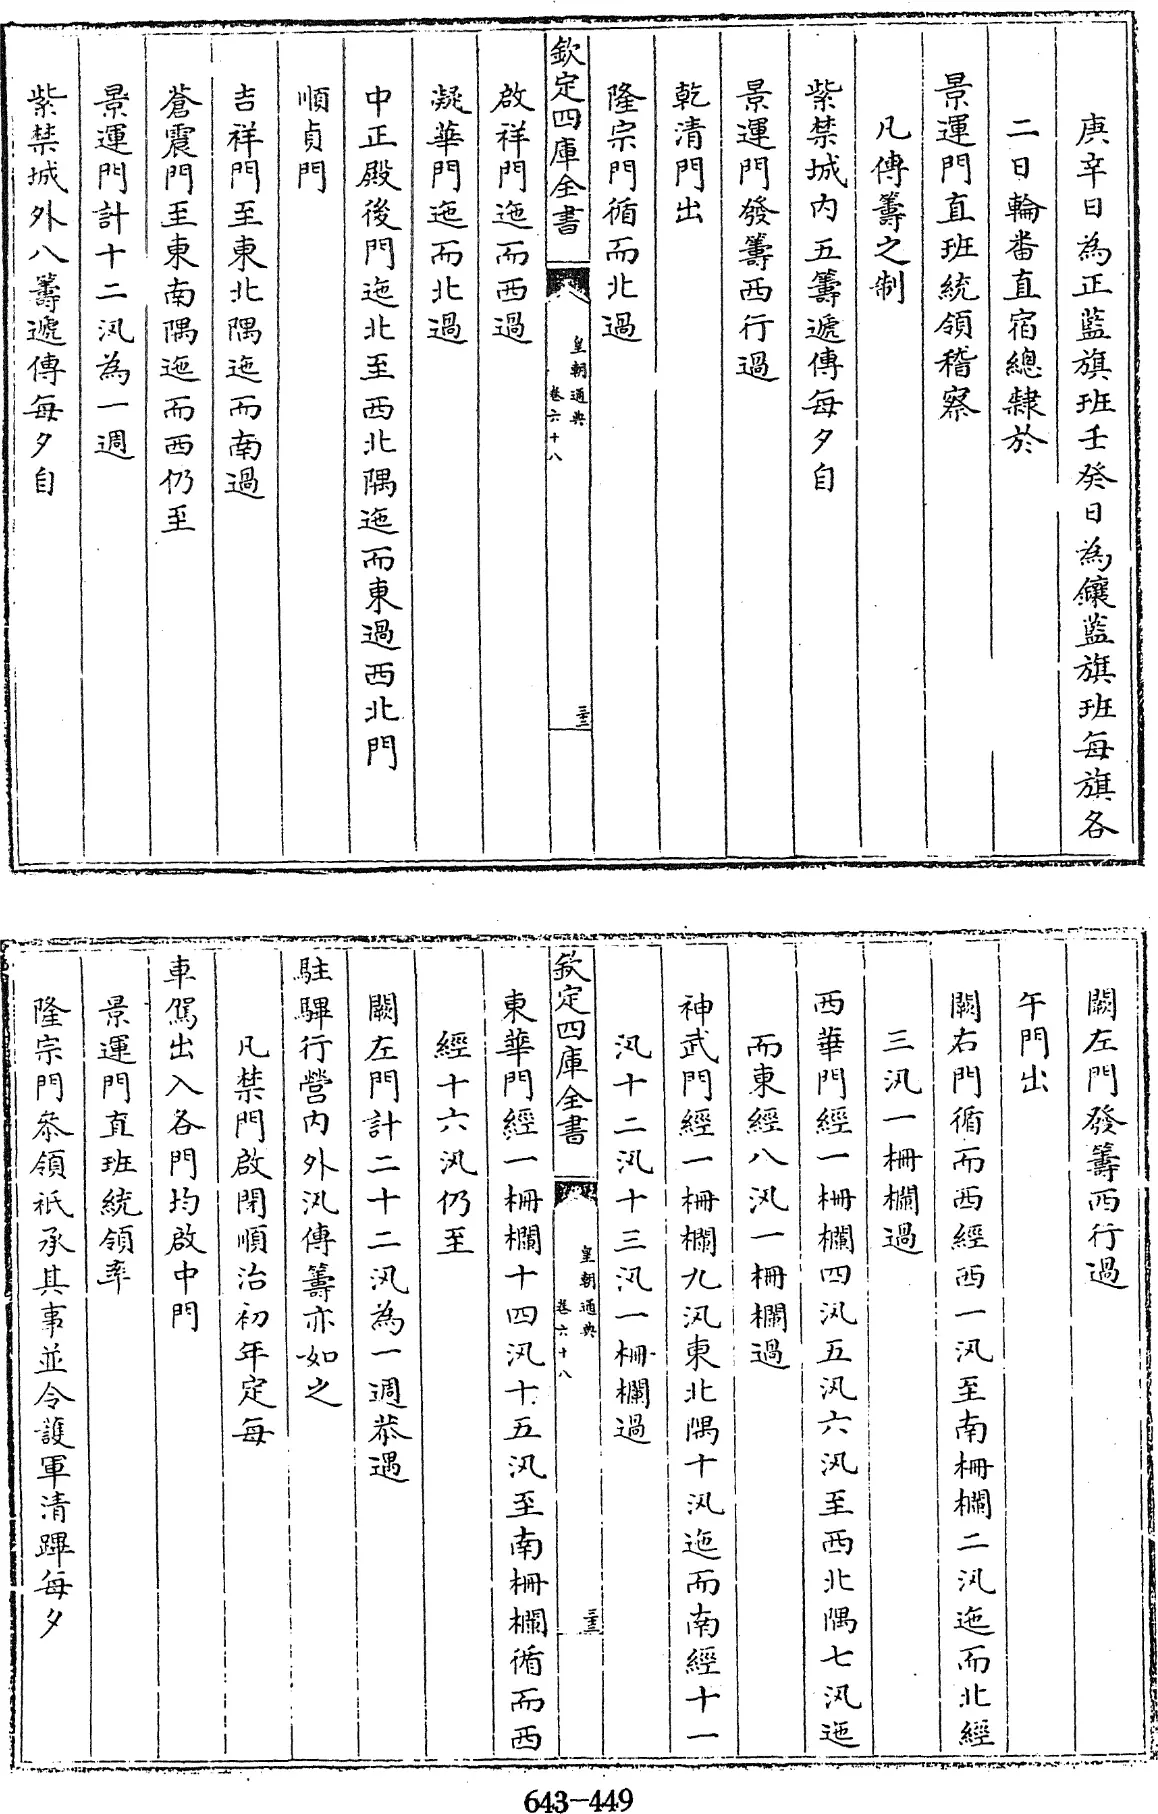 庚辛日為正藍旗班壬癸日為鑲藍旗班每旗各
二日輪畨直宿總隸於
景運門直班統領稽察
凡傳籌之制
紫禁城内五籌遞傳每夕自
景運門發籌西行過
乾清門出
隆宗門循而北過
欽定四庫全書
皇朝通典
卷六十八
三三
啟祥門迤而西過
凝華門迤而北過
中正殿後門迤北至西北隅迤而東過西北門
順貞門
吉祥門至東北隅迤而南過
蒼震門至東南隅迤而西仍至
景運門計十二汛為一週
紫禁城外八籌遞傳每夕自
闕左門發籌西行過
午門出
闕右門循而西經西一汛至南柵欄二汛迤而北經
三汛一柵欄過
西華門經一柵欄四汛五汛六汛至西北隅七汛迤
而東經八汛一柵欄過
神武門經一柵欄九汛東北隅十汛迤而南經十一
汛十二汛十三汛一柵欄過
欽定四庫全書
皇朝通典
卷六十八
三三
東華門經一柵欄十四汛十五汛至南柵欄循而西
經十六汛仍至
闕左門計二十二汛為一週恭遇
駐蹕行營内外汛傳籌亦如之
凡禁門啟閉順治初年定每
車駕出入各門均啟中門
景運門直班統領率
隆宗門叅領祇承其事並令護軍清蹕每夕
643-449